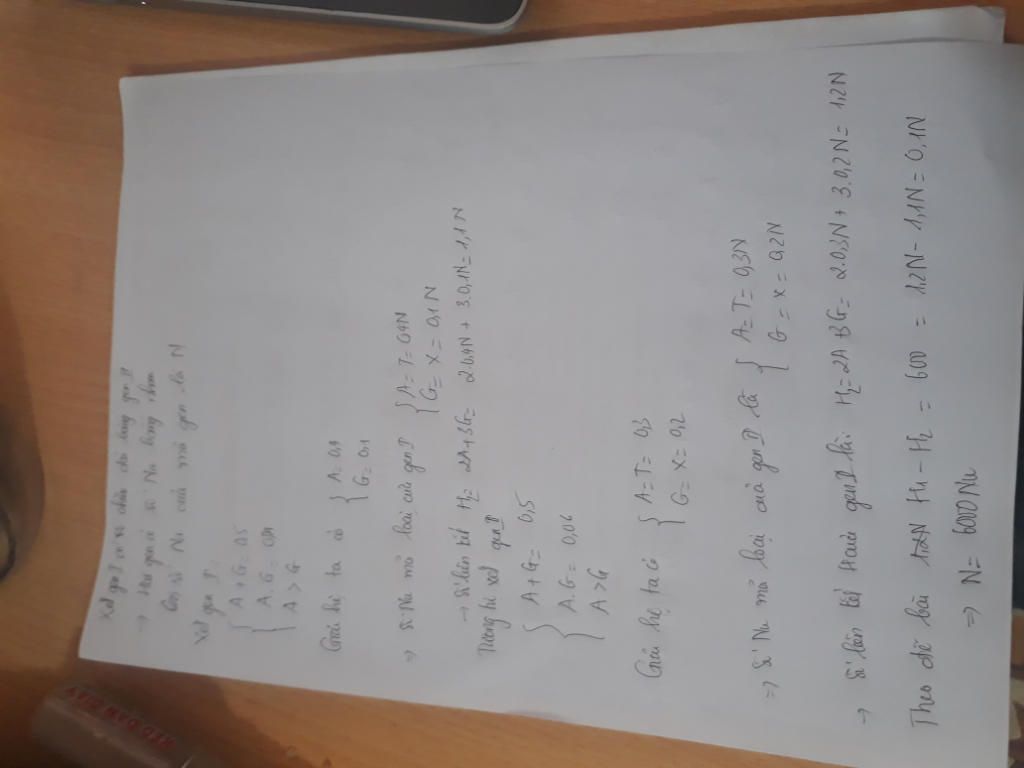 Xét gen I có vs chiều dài bằng gen II
→ Hai gen có số Nu bằng nhau
Gọi số Nu của mỗi gen là N
Xét gen I:
{ A + G = 0,5
A . G = 0,04
A > G
Giải hệ ta có { A = 0,4
G = 0,1
⇒ Số Nu mỗi loại của gen I { A = T = 0,4N
G = X = 0,1N
→ Số liên kết H2 2A + 3G = 2.0,4N + 3.0,1N = 1,1N
Tương tự xét gen II
{ A + G = 0,5
A.G = 0,06
A > G
Giải hệ ta có { A = T = 0,3
G = X = 0,2
⇒ Số Nu mỗi loại của gen II là { A = T = 0,3N
G = X = 0,2N
→ Số liên kết của gen II là: H2 = 2A + 3G = 2.0,3N + 3.0,2N = 1,2N
Theo đề bài H1 - H2 = 600 = 1,2N - 1,1N = 0,1N
⇒ N = 6000 Nu